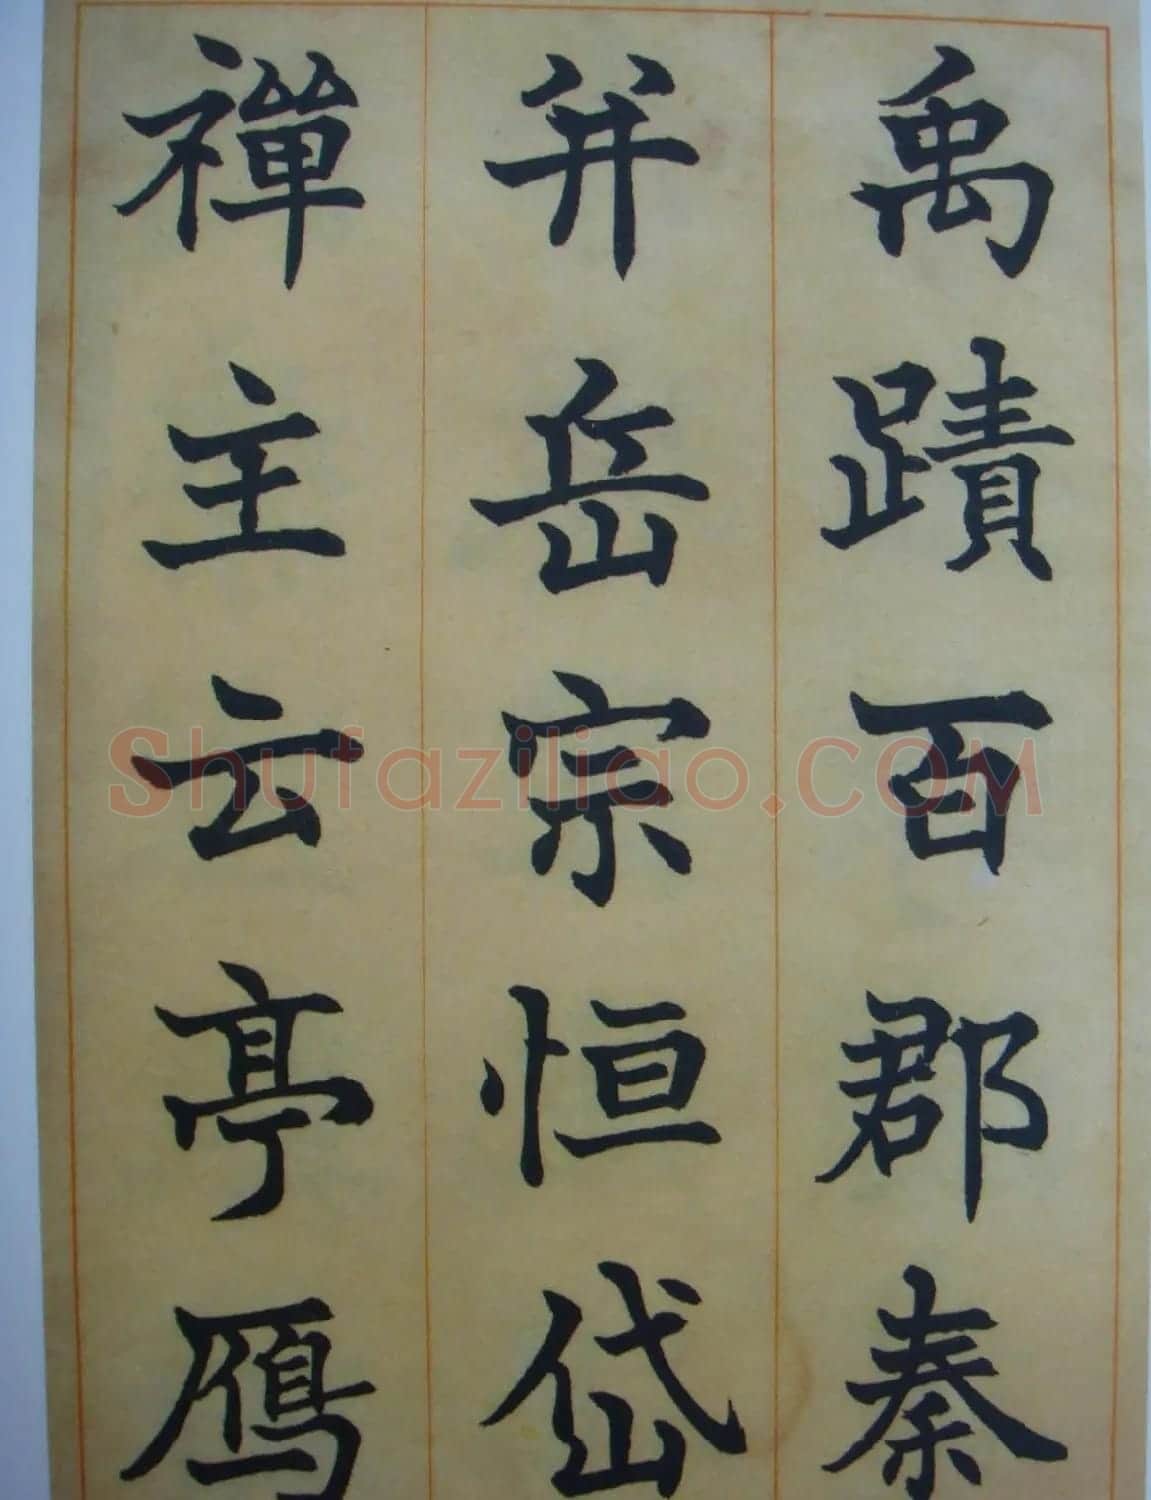 禹蹟百郡秦
并岳宗恒岱
禪主云亭鴈
Shufaziliao.COM